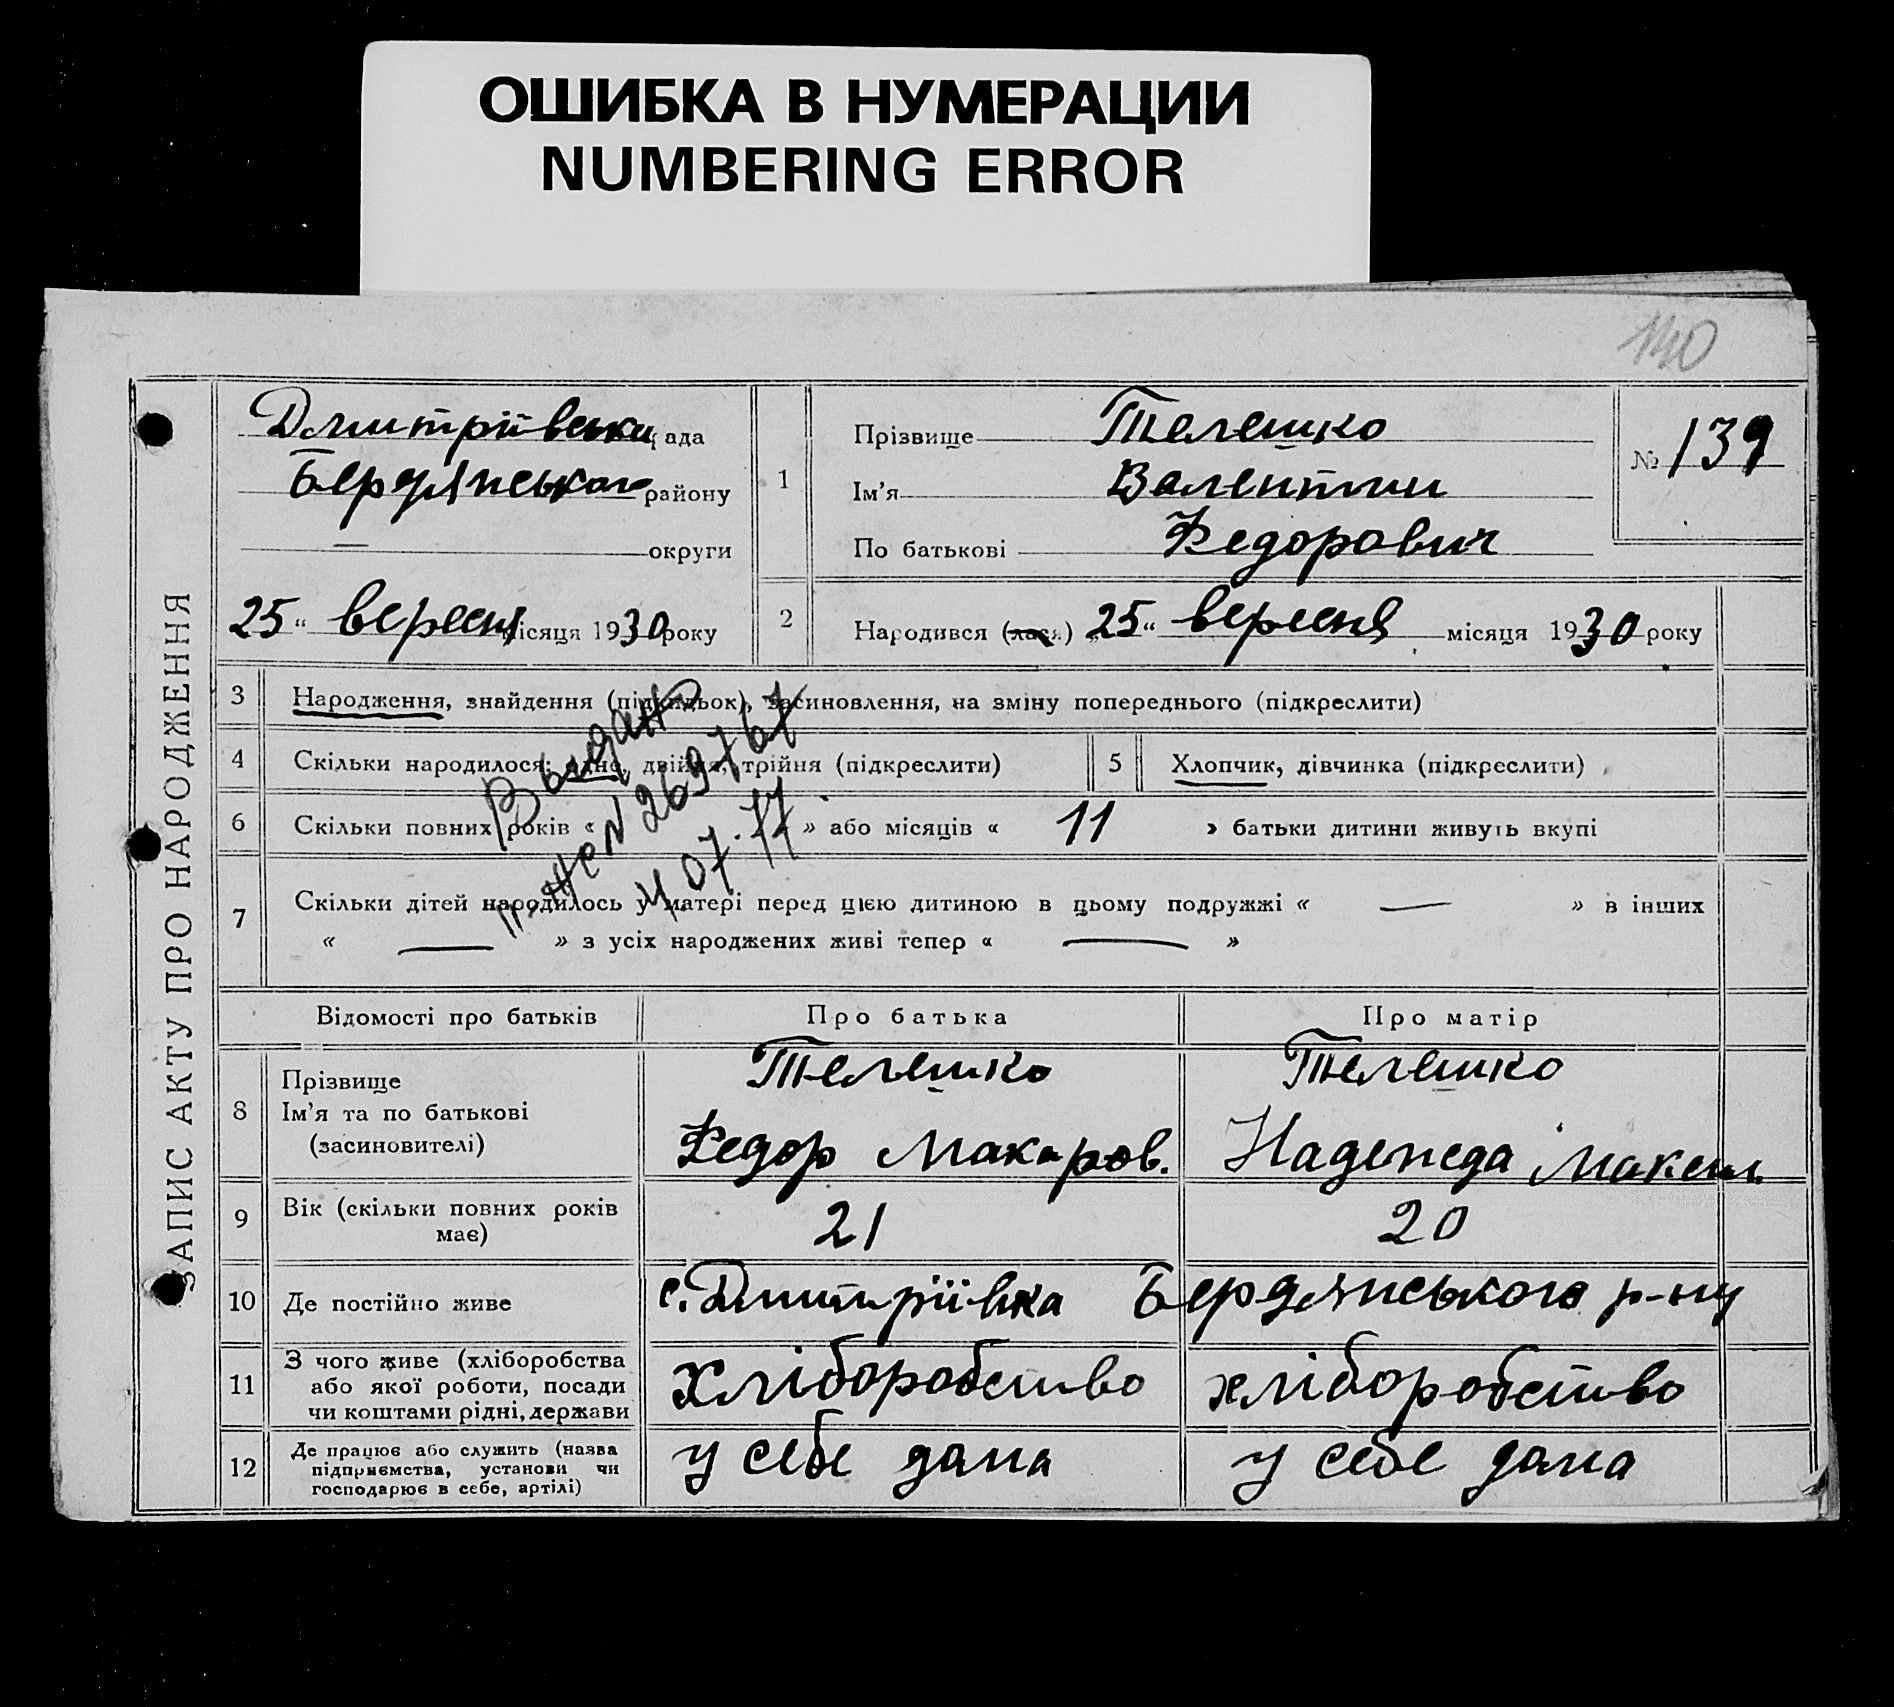 ОШИБКА В НУМЕРАЦИИ
NUMBERING ERROR
140
ЗАПИС АКТУ ПРО НАРОДЖЕННЯ
Дмитріївська рада
Бердянського району
— округи
25 " вересня місяця 1930 року
1
Прізвище Телешко
Ім'я Валентин
По батькові Федорович
№ 139
2 Народився (лася) „ 25 " вересня місяця 1930 року
3 Народження, знайдення (підкидьок), засиновлення, на зміну попереднього (підкреслити)
4 Скільки народилося: одно, двійня, трійня (підкреслити) 5 Хлопчик, дівчинка (підкреслити)
6 Скільки повних років « » або місяців « 11 » батьки дитини живуть вкупі
7 Скільки дітей народилось у матері перед цією дитиною в цьому подружжі « — » в інших
« — » з усіх народжених живі тепер « — »
Выдано
N 269767
07.77
Відомості про батьків Про батька Про матір
8 Прізвище Ім'я та по батькові (засиновителі)
Телешко Телешко
Федор Макаров. Надежда Максим
9 Вік (скільки повних років має) 21 20
10 Де постійно живе с. Дмитріївка Бердянського р-ну
11 З чого живе (хліборобства або якої роботи, посади чи коштами рідні, держави хліборобство хліборобство
12 Де працює або служить (назва підприємства, установи чи господарює в себе, артілі) у себе дома у себе дома